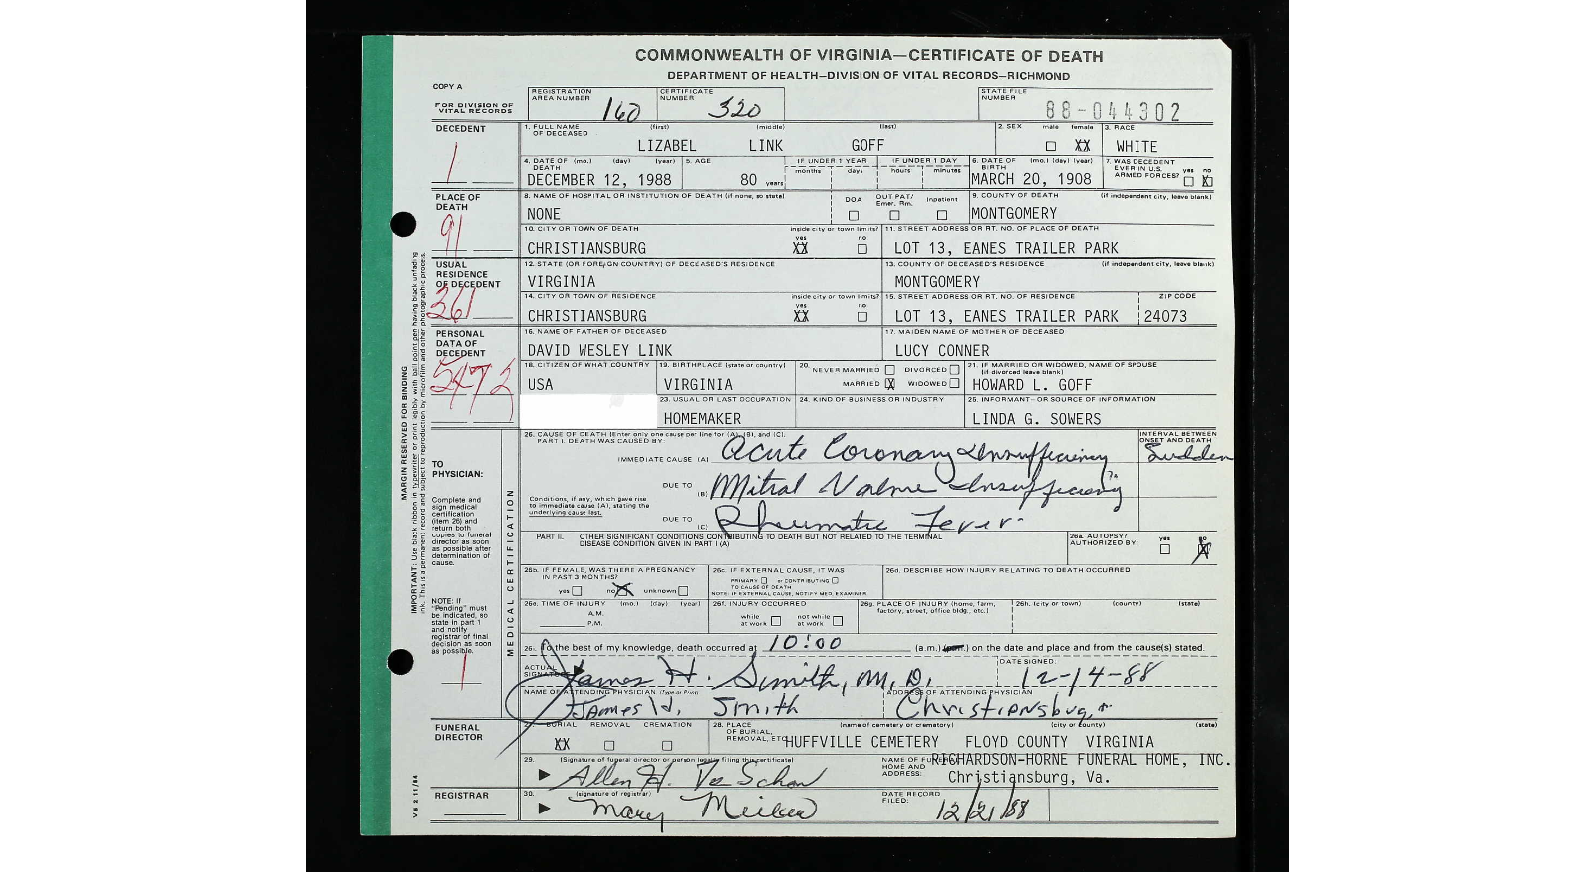 COMMONWEALTH OF VIRGINIA—CERTIFICATE OF DEATH
DEPARTMENT OF HEALTH—DIVISION OF VITAL RECORDS—RICHMOND
COPY A
FOR DIVISION OF VITAL RECORDS
REGISTRATION AREA NUMBER 160 CERTIFICATE NUMBER 320 STATE FILE NUMBER 88-044302
DECEDENT
1. FULL NAME OF DECEASED (first) (middle) (last) 2. SEX male female 3. RACE
LIZABEL LINK GOFF XX WHITE
4. DATE OF DEATH (mo.) (day) (year) 5. AGE IF UNDER 1 YEAR months days IF UNDER 1 DAY hours minutes 6. DATE OF BIRTH (mo.) (day) (year) 7. WAS DECEDENT EVER IN U.S. ARMED FORCES? yes no
DECEMBER 12, 1988 80 years MARCH 20, 1908 X
PLACE OF DEATH
91
8. NAME OF HOSPITAL OR INSTITUTION OF DEATH (if none, so state) DOA OUT PAT/ Emer. Rm. Inpatient 9. COUNTY OF DEATH (if independent city, leave blank)
NONE MONTGOMERY
10. CITY OR TOWN OF DEATH inside city or town limits? yes no 11. STREET ADDRESS OR RT. NO. OF PLACE OF DEATH
CHRISTIANSBURG XX LOT 13, EANES TRAILER PARK
USUAL RESIDENCE OF DECEDENT
261
12. STATE (OR FOREIGN COUNTRY) OF DECEASED'S RESIDENCE 13. COUNTY OF DECEASED'S RESIDENCE (if independent city, leave blank)
VIRGINIA MONTGOMERY
14. CITY OR TOWN OF RESIDENCE inside city or town limits? yes no 15. STREET ADDRESS OR RT. NO. OF RESIDENCE ZIP CODE
CHRISTIANSBURG XX LOT 13, EANES TRAILER PARK 24073
PERSONAL DATA OF DECEDENT
5472
16. NAME OF FATHER OF DECEASED 17. MAIDEN NAME OF MOTHER OF DECEASED
DAVID WESLEY LINK LUCY CONNER
18. CITIZEN OF WHAT COUNTRY 19. BIRTHPLACE (state or country) 20. NEVER MARRIED DIVORCED MARRIED X WIDOWED 21. IF MARRIED OR WIDOWED, NAME OF SPOUSE (if divorced leave blank)
USA VIRGINIA HOWARD L. GOFF
23. USUAL OR LAST OCCUPATION 24. KIND OF BUSINESS OR INDUSTRY 25. INFORMANT—OR SOURCE OF INFORMATION
HOMEMAKER LINDA G. SOWERS
TO PHYSICIAN:
Complete and sign medical certification (item 26) and return both copies to funeral director as soon as possible after determination of cause.
NOTE: If "Pending" must be indicated, so state in part 1 and notify registrar of final decision as soon as possible.
MEDICAL CERTIFICATION
26. CAUSE OF DEATH (Enter only one cause per line for (A), (B), and (C).
PART I. DEATH WAS CAUSED BY: INTERVAL BETWEEN ONSET AND DEATH
IMMEDIATE CAUSE (A) Acute Coronary Insufficiency Sudden
DUE TO (B) Mitral Valve Insufficiency
Conditions, if any, which gave rise to immediate cause (A), stating the underlying cause last.
DUE TO (C) Rheumatic Fever
PART II. OTHER SIGNIFICANT CONDITIONS CONTRIBUTING TO DEATH BUT NOT RELATED TO THE TERMINAL DISEASE CONDITION GIVEN IN PART I (A) 26a. AUTOPSY? AUTHORIZED BY yes no
26b. IF FEMALE, WAS THERE A PREGNANCY IN PAST 3 MONTHS? yes no unknown
26c. IF EXTERNAL CAUSE, IT WAS PRIMARY or CONTRIBUTING TO CAUSE OF DEATH
NOTE: IF EXTERNAL CAUSE, NOTIFY MED. EXAMINER
26d. DESCRIBE HOW INJURY RELATING TO DEATH OCCURRED
26e. TIME OF INJURY (mo.) (day) (year) A.M. P.M. 26f. INJURY OCCURRED while at work not while at work 26g. PLACE OF INJURY (home, farm, factory, street, office bldg., etc.) 26h. (city or town) (county) (state)
26i. To the best of my knowledge, death occurred at 10:00 (a.m.) (p.m.) on the date and place and from the cause(s) stated.
ACTUAL SIGNATURE James H. Smith, M.D. DATE SIGNED: 12-14-88
NAME OF ATTENDING PHYSICIAN (Type or Print) ADDRESS OF ATTENDING PHYSICIAN
James H. Smith Christiansburg
FUNERAL DIRECTOR
27. BURIAL REMOVAL CREMATION 28. PLACE OF BURIAL, REMOVAL, ETC. (name of cemetery or crematory) (city or county) (state)
XX HUFFVILLE CEMETERY FLOYD COUNTY VIRGINIA
29. (Signature of funeral director or person legally filing this certificate) NAME OF FUNERAL HOME AND ADDRESS: RICHARDSON-HORNE FUNERAL HOME, INC.
Christiansburg, Va.
REGISTRAR
30. (signature of registrar) DATE RECORD FILED: 12/21/88
Mary
MARGIN RESERVED FOR BINDING
VS 2 11/84